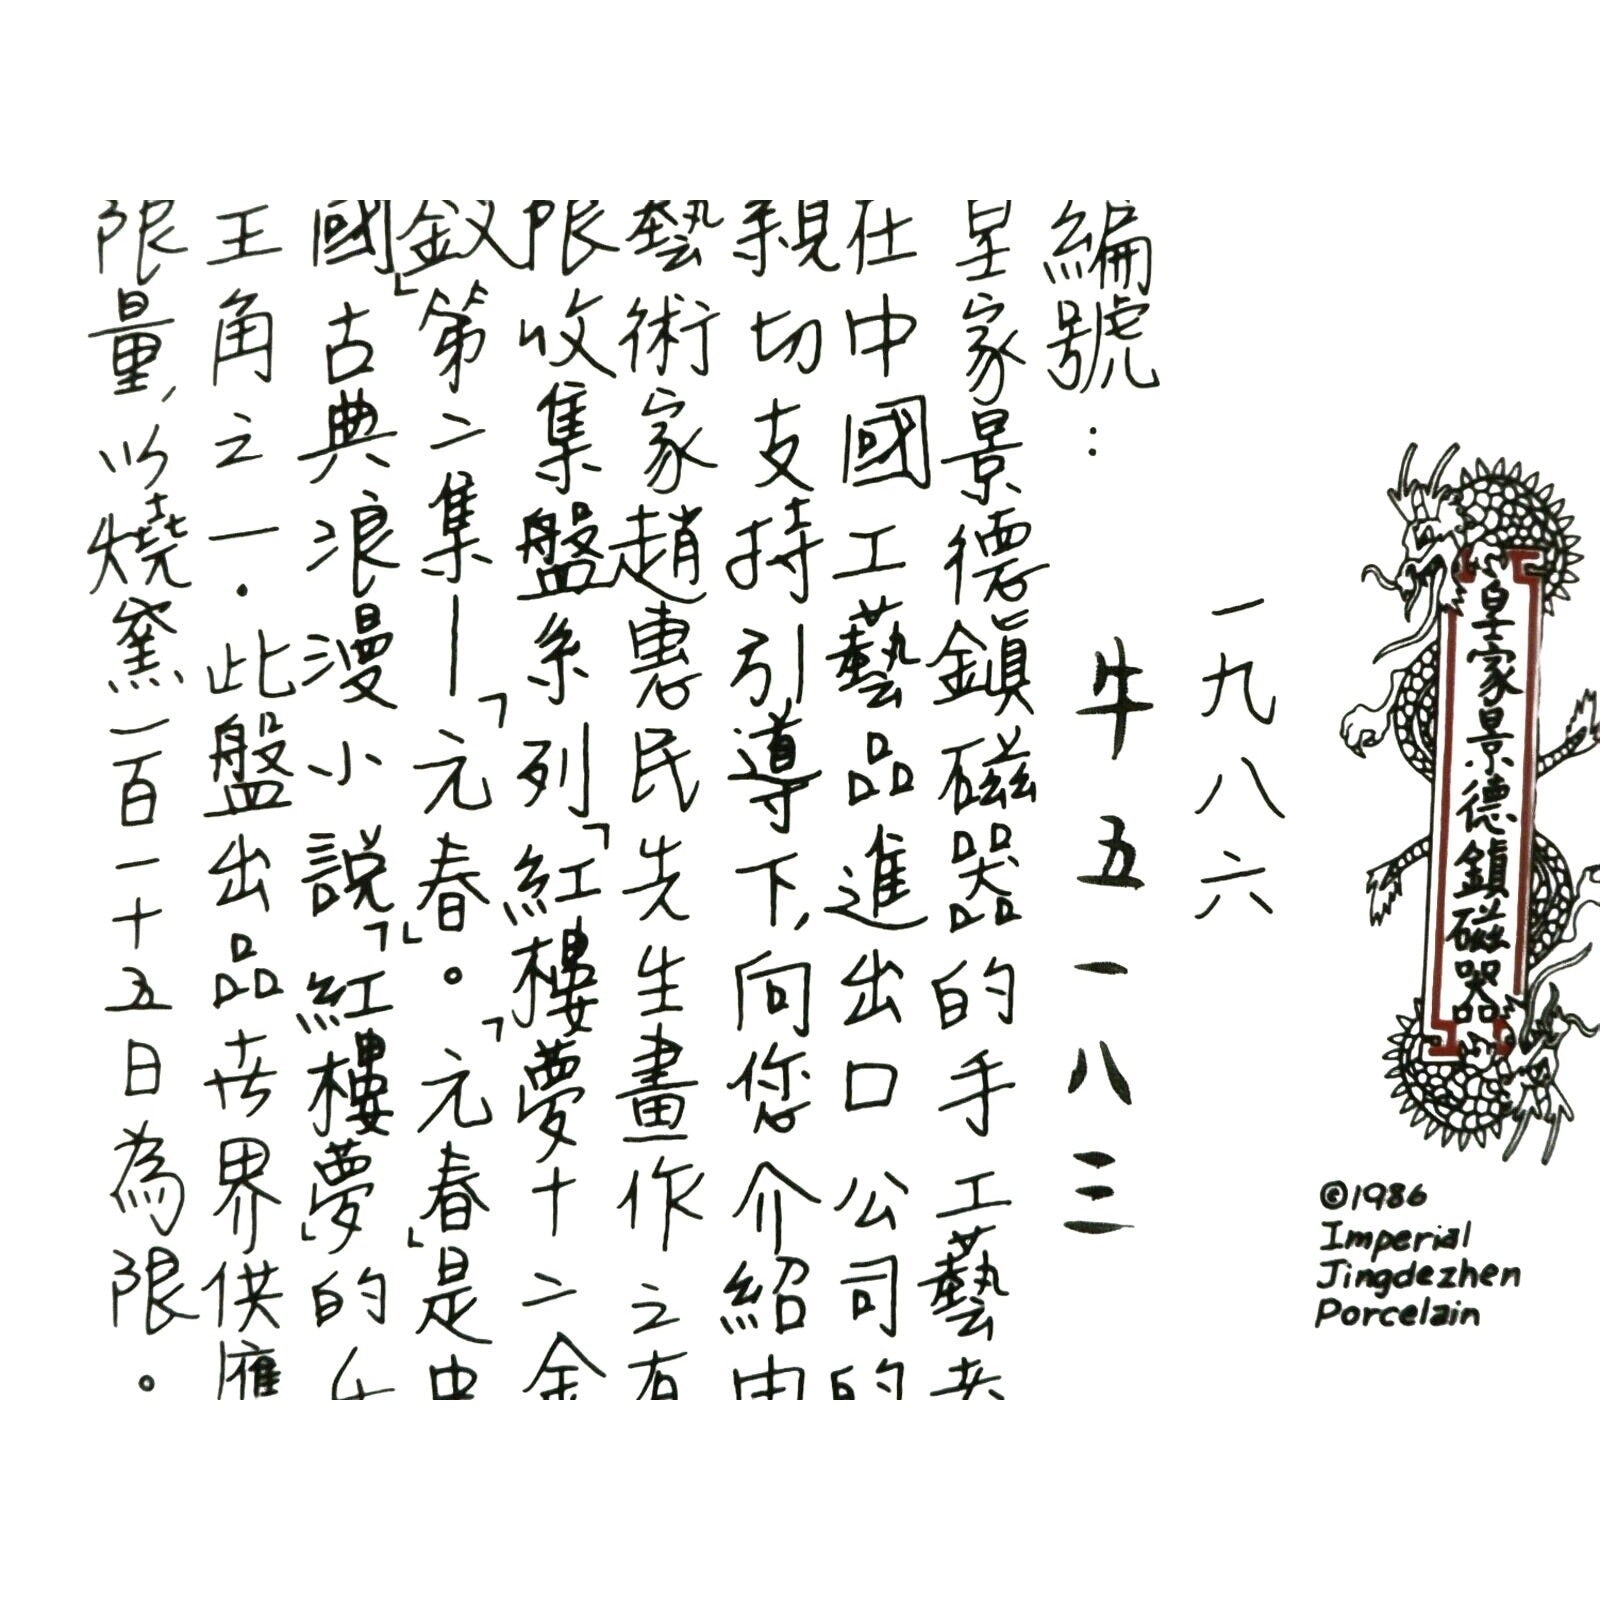 皇家景德鎮磁器
©1986
Imperial
Jingdezhen
Porcelain
一九八六
編號：牛五一八三
皇家景德鎮磁器的手工藝
在中國工藝品進出口公司的
親切支持引導下，向您介紹由
藝術家趙惠民先生畫作之有
限收集盤系列「紅樓夢十二金
釵」第二集—「元春」。「元春」是中
國古典浪漫小說「紅樓夢」的
王角之一．此盤出品世界供應
限量，以燒窯一百一十五日為限。